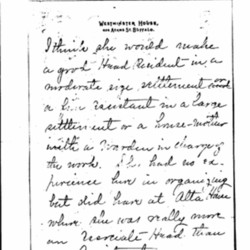 WESTMINSTER HOUSE,
BUFFALO.
I think she would make
a good Head Resident in a
moderate size settlement and
a fine assistant in a large
settlement or a house-mother
with a Warden in charge of
the work. had no ex-
perience here in organizing
but did have at Alta House
where she was really more
an Associate Head than